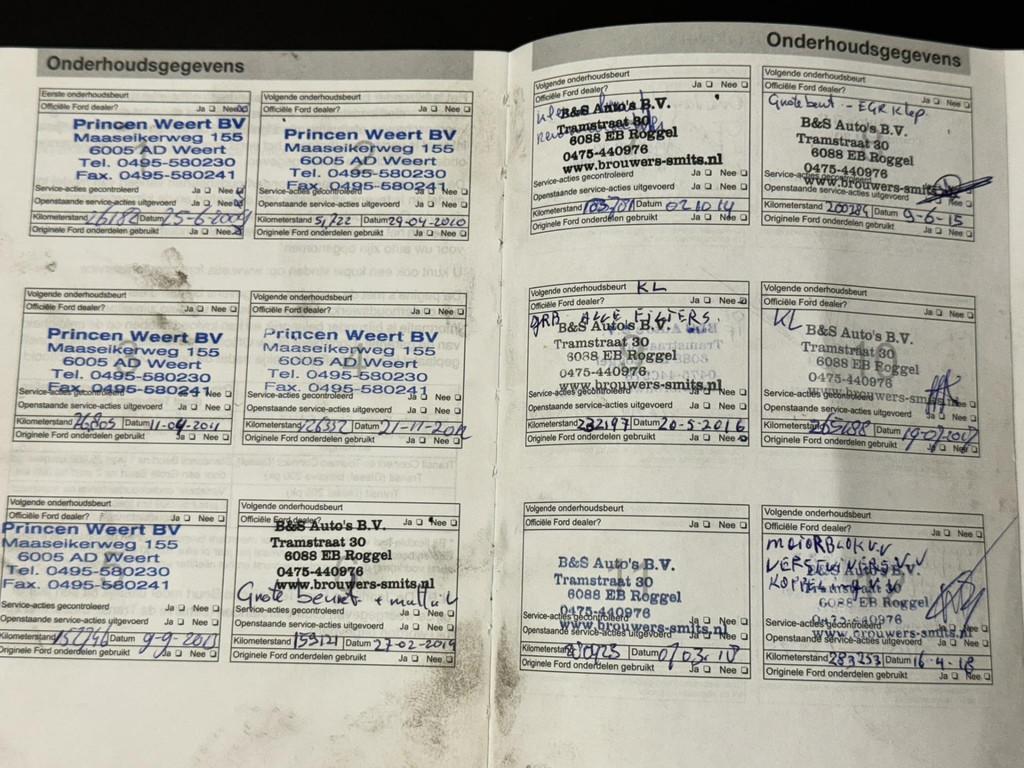 Onderhoudsgegevens
Eerste onderhoudsbeurt
Officiële Ford dealer? Ja Nee
Princen Weert BV
Maaseikerweg 155
6005 AD Weert
Tel. 0495-580230
Fax. 0495-580241
Service-acties gecontroleerd Ja Nee
Openstaande service-acties uitgevoerd Ja Nee
Kilometerstand 26182 Datum 25-6-2009
Originele Ford onderdelen gebruikt Ja Nee
Volgende onderhoudsbeurt
Officiële Ford dealer? Ja Nee
Princen Weert BV
Maaseikerweg 155
6005 AD Weert
Tel. 0495-580230
Fax. 0495-580241
Service-acties gecontroleerd Ja Nee
Openstaande service-acties uitgevoerd Ja Nee
Kilometerstand Datum 29-04-2010
Originele Ford onderdelen gebruikt Ja Nee
Volgende onderhoudsbeurt
Officiële Ford dealer? Ja Nee
Princen Weert BV
Maaseikerweg 155
6005 AD Weert
Tel. 0495-580230
Fax. 0495-580241
Service-acties gecontroleerd Ja Nee
Openstaande service-acties uitgevoerd Ja Nee
Kilometerstand 76805 Datum 11-04-2011
Originele Ford onderdelen gebruikt Ja Nee
Volgende onderhoudsbeurt
Officiële Ford dealer? Ja Nee
Princen Weert BV
Maaseikerweg 155
6005 AD Weert
Tel. 0495-580230
Fax. 0495-580241
Service-acties gecontroleerd Ja Nee
Openstaande service-acties uitgevoerd Ja Nee
Kilometerstand 126352 Datum 21-11-2012
Originele Ford onderdelen gebruikt Ja Nee
Volgende onderhoudsbeurt
Officiële Ford dealer? Ja Nee
Princen Weert BV
Maaseikerweg 155
6005 AD Weert
Tel. 0495-580230
Fax. 0495-580241
Service-acties gecontroleerd Ja Nee
Openstaande service-acties uitgevoerd Ja Nee
Kilometerstand Datum 9-9-2013
Originele Ford onderdelen gebruikt Ja Nee
Volgende onderhoudsbeurt
Officiële Ford dealer? Ja Nee
B&S Auto's B.V.
Tramstraat 30
6088 EB Roggel
0475-440976
www.brouwers-smits.nl
Grote beurt +
Service-acties gecontroleerd Ja Nee
Openstaande service-acties uitgevoerd Ja Nee
Kilometerstand 159121 Datum 27-02-2014
Originele Ford onderdelen gebruikt Ja Nee
Onderhoudsgegevens
Volgende onderhoudsbeurt
Officiële Ford dealer? Ja Nee
B&S Auto's B.V.
Tramstraat 30
6088 EB Roggel
0475-440976
www.brouwers-smits.nl
Service-acties gecontroleerd Ja Nee
Openstaande service-acties uitgevoerd Ja Nee
Kilometerstand Datum 02.10.14
Originele Ford onderdelen gebruikt Ja Nee
Volgende onderhoudsbeurt
Officiële Ford dealer? Ja Nee
Grote beurt - EGR Klep
B&S Auto's B.V.
Tramstraat 30
6088 EB Roggel
0475-440976
www.brouwers-smits.nl
Service-acties gecontroleerd
Openstaande service-acties uitgevoerd Ja Nee
Kilometerstand 200284 Datum 9-6-15
Originele Ford onderdelen gebruikt Ja Nee
Volgende onderhoudsbeurt KL
Officiële Ford dealer? Ja Nee
GRB ALLE FILTERS.
B&S Auto's B.V.
Tramstraat 30
6088 EB Roggel
0475-440976
www.brouwers-smits.nl
Service-acties gecontroleerd Ja Nee
Openstaande service-acties uitgevoerd Ja Nee
Kilometerstand 232197 Datum 20-5-2016
Originele Ford onderdelen gebruikt Ja Nee
Volgende onderhoudsbeurt
Officiële Ford dealer? Ja Nee
KL
B&S Auto's B.V.
Tramstraat 30
6088 EB Roggel
0475-440976
www.brouwers-smits.nl
Service-acties gecontroleerd
Openstaande service-acties uitgevoerd Ja Nee
Kilometerstand Datum
Originele Ford onderdelen gebruikt Ja Nee
Volgende onderhoudsbeurt
Officiële Ford dealer? Ja Nee
B&S Auto's B.V.
Tramstraat 30
6088 EB Roggel
0475-440976
www.brouwers-smits.nl
Service-acties gecontroleerd Ja Nee
Openstaande service-acties uitgevoerd Ja Nee
Kilometerstand Datum 07.03.18
Originele Ford onderdelen gebruikt Ja Nee
Volgende onderhoudsbeurt
Officiële Ford dealer? Ja Nee
B&S Auto's B.V.
Tramstraat 30
6088 EB Roggel
0475-440976
www.brouwers-smits.nl
Service-acties gecontroleerd
Openstaande service-acties uitgevoerd Ja Nee
Kilometerstand 283253 Datum 16-4-18
Originele Ford onderdelen gebruikt Ja Nee